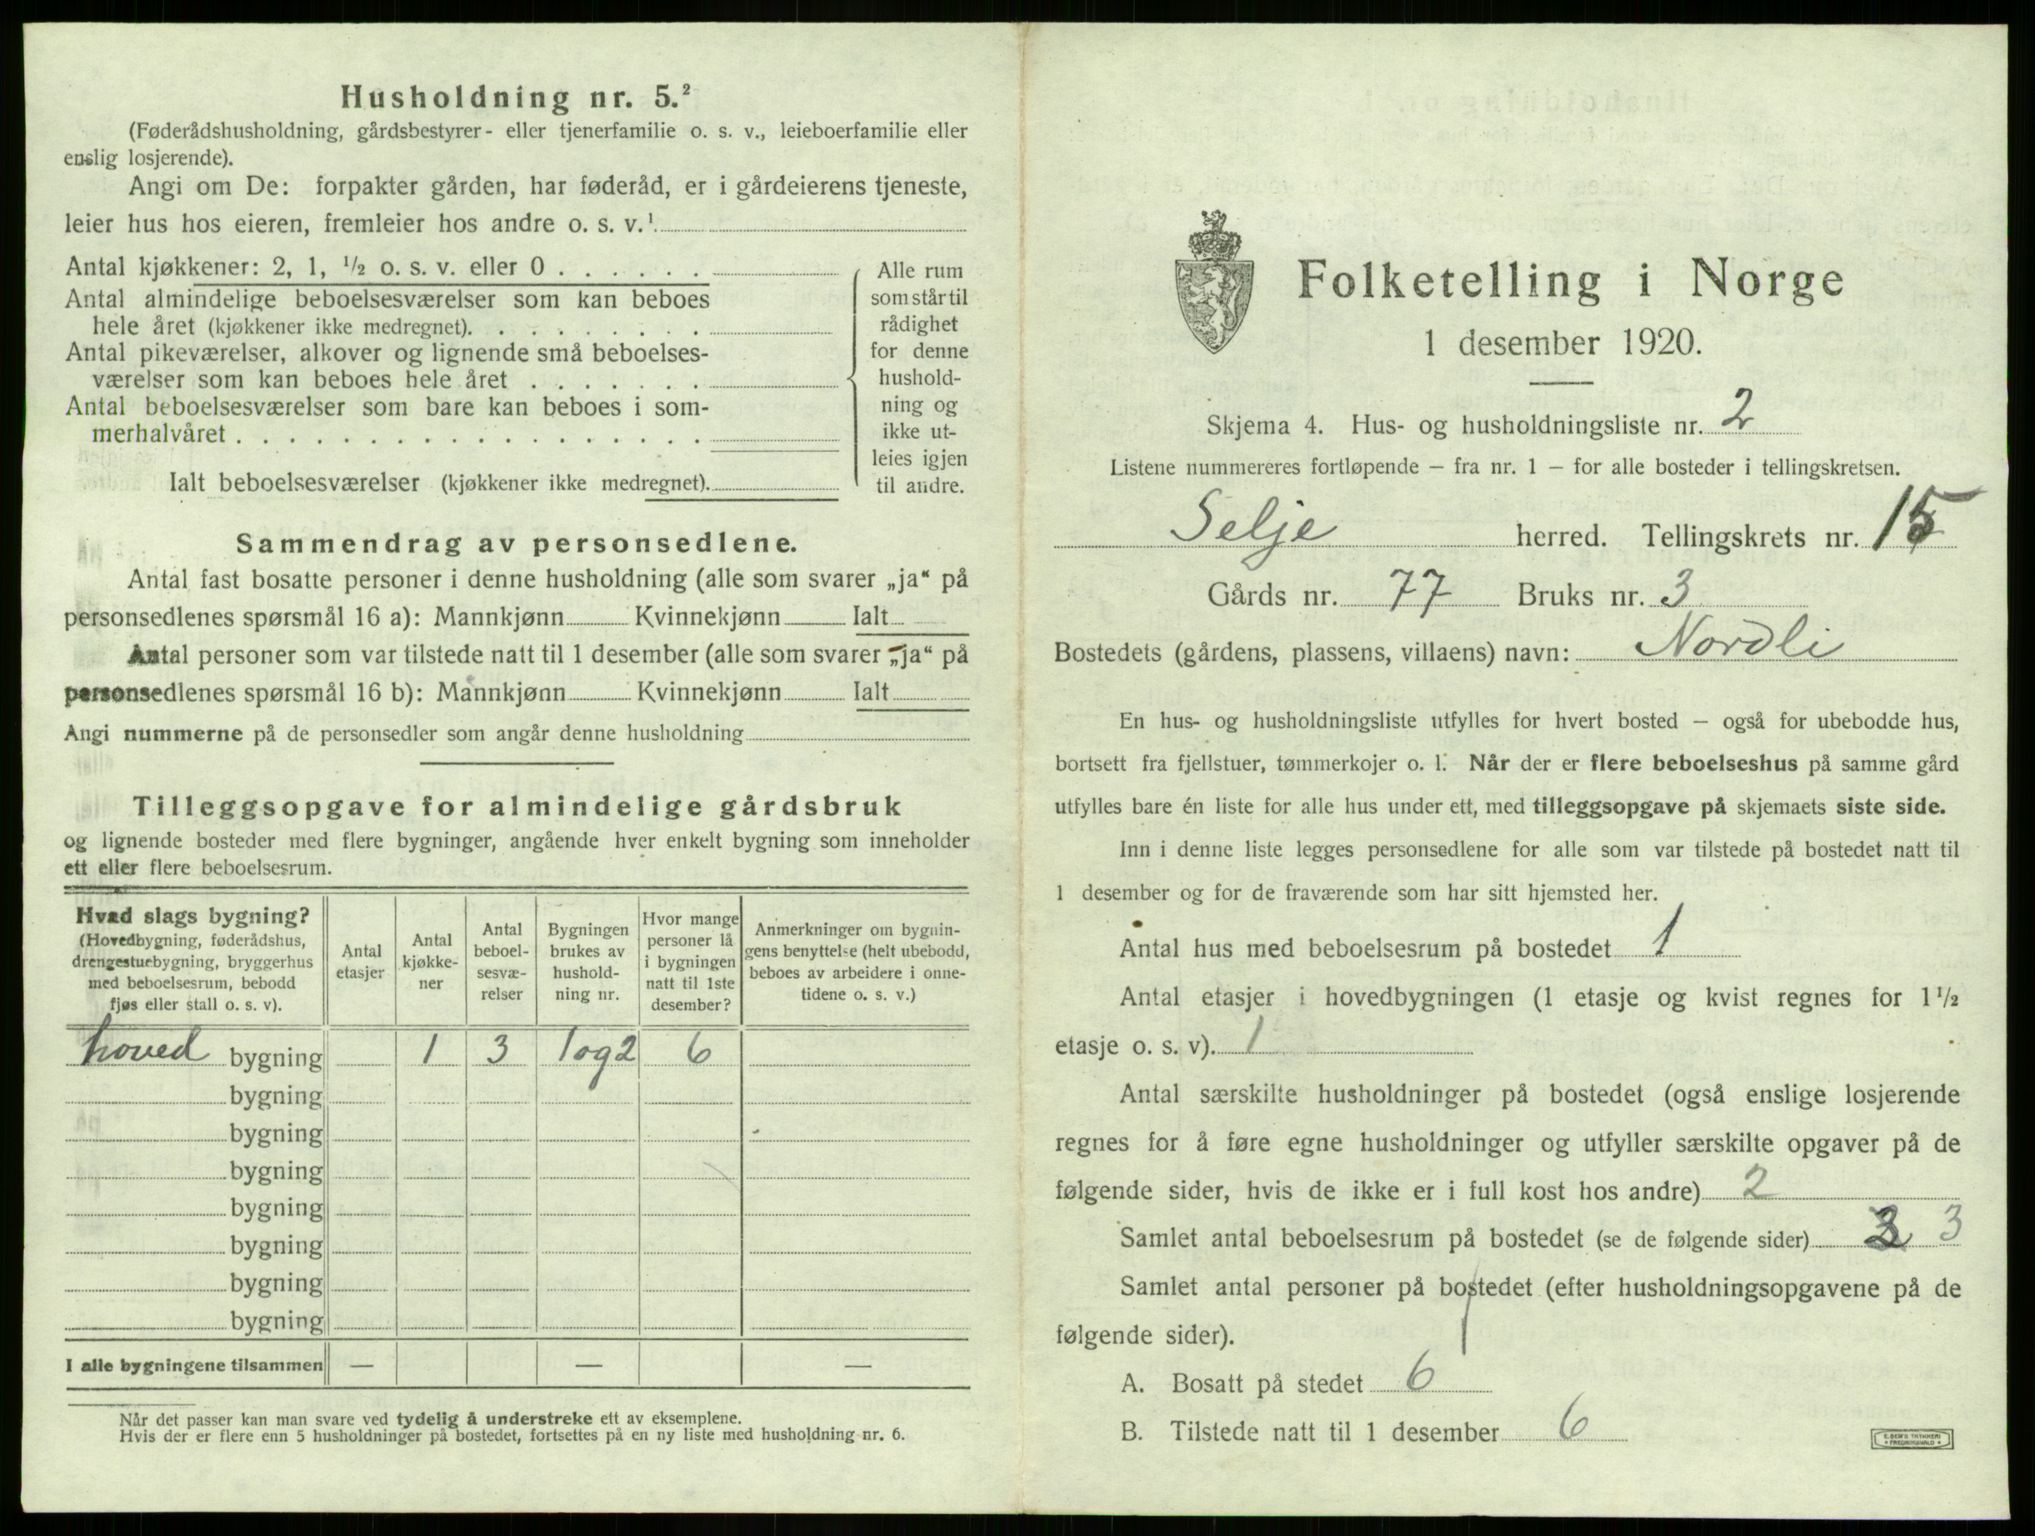 Husholdning nr. 5.²
(Føderådshusholdning, gårdsbestyrer- eller tjenerfamilie o. s. v., leieboerfamilie eller
enslig losjerende).
Angi om De: forpakter gården, har føderåd, er i gårdeierens tjeneste,
leier hus hos eieren, fremleier hos andre o. s. v.¹
Antal kjøkkener: 2, 1, ½ o. s. v. eller 0 . . . . . .
Antal almindelige beboelsesværelser som kan beboes
hele året (kjøkkener ikke medregnet). . . . . . . . .
Antal pikeværelser, alkover og lignende små beboelses-
værelser som kan beboes hele året . . . . . . .
Antal beboelsesværelser som bare kan beboes i som-
merhalvåret . . . . . . . . . . . . . . . . . .
Ialt beboelsesværelser (kjøkkener ikke medregnet).
Alle rum
som står til
rådighet
for denne
hushold-
ning og
ikke ut-
leies igjen
til andre.
Sammendrag av personsedlene.
Antal fast bosatte personer i denne husholdning (alle som svarer „ja“ på
personsedlenes spørsmål 16 a): Mannkjønn Kvinnekjønn Ialt
Antal personer som var tilstede natt til 1 desember (alle som svarer „ja“ på
personsedlenes spørsmål 16 b): Mannkjønn Kvinnekjønn Ialt
Angi nummerne på de personsedler som angår denne husholdning
Tilleggsopgave for almindelige gårdsbruk
og lignende bosteder med flere bygninger, angående hver enkelt bygning som inneholder
ett eller flere beboelsesrum.
Hvad slags bygning?
(Hovedbygning, føderådshus,
drengestuebygning, bryggerhus
med beboelsesrum, bebodd
fjøs eller stall o. s. v).
Antal
etasjer
Antal
kjøkke-
ner
Antal
beboel-
sesvæ-
relser
Bygningen
brukes av
hushold-
ning nr.
Hvor mange
personer lå
i bygningen
natt til 1ste
desember?
Anmerkninger om bygnin-
gens benyttelse (helt ubebodd,
beboes av arbeidere i onne-
tidene o. s. v.)
hoved bygning 1 3 1 og 2 6
bygning
bygning
bygning
bygning
bygning
bygning
bygning
I alle bygningene tilsammen — — —
Når det passer kan man svare ved tydelig å understreke ett av eksemplene.
Hvis der er flere enn 5 husholdninger på bostedet, fortsettes på en ny liste med husholdning nr. 6.
Folketelling i Norge
1 desember 1920.
Skjema 4. Hus- og husholdningsliste nr. 2
Listene nummereres fortløpende – fra nr. 1 – for alle bosteder i tellingskretsen.
Selje herred. Tellingskrets nr. 15
Gårds nr. 77 Bruks nr. 3
Bostedets (gårdens, plassens, villaens) navn: Nordli
En hus- og husholdningsliste utfylles for hvert bosted – også for ubebodde hus,
bortsett fra fjellstuer, tømmerkojer o. l. Når der er flere beboelseshus på samme gård
utfylles bare én liste for alle hus under ett, med tilleggsopgave på skjemaets siste side.
Inn i denne liste legges personsedlene for alle som var tilstede på bostedet natt til
1 desember og for de fraværende som har sitt hjemsted her.
Antal hus med beboelsesrum på bostedet 1
Antal etasjer i hovedbygningen (1 etasje og kvist regnes for 1½
etasje o. s. v). 1
Antal særskilte husholdninger på bostedet (også enslige losjerende
regnes for å føre egne husholdninger og utfyller særskilte opgaver på de
følgende sider, hvis de ikke er i full kost hos andre) 2
Samlet antal beboelsesrum på bostedet (se de følgende sider) 3
Samlet antal personer på bostedet (efter husholdningsopgavene på de
følgende sider).
A. Bosatt på stedet 6
B. Tilstede natt til 1 desember 6